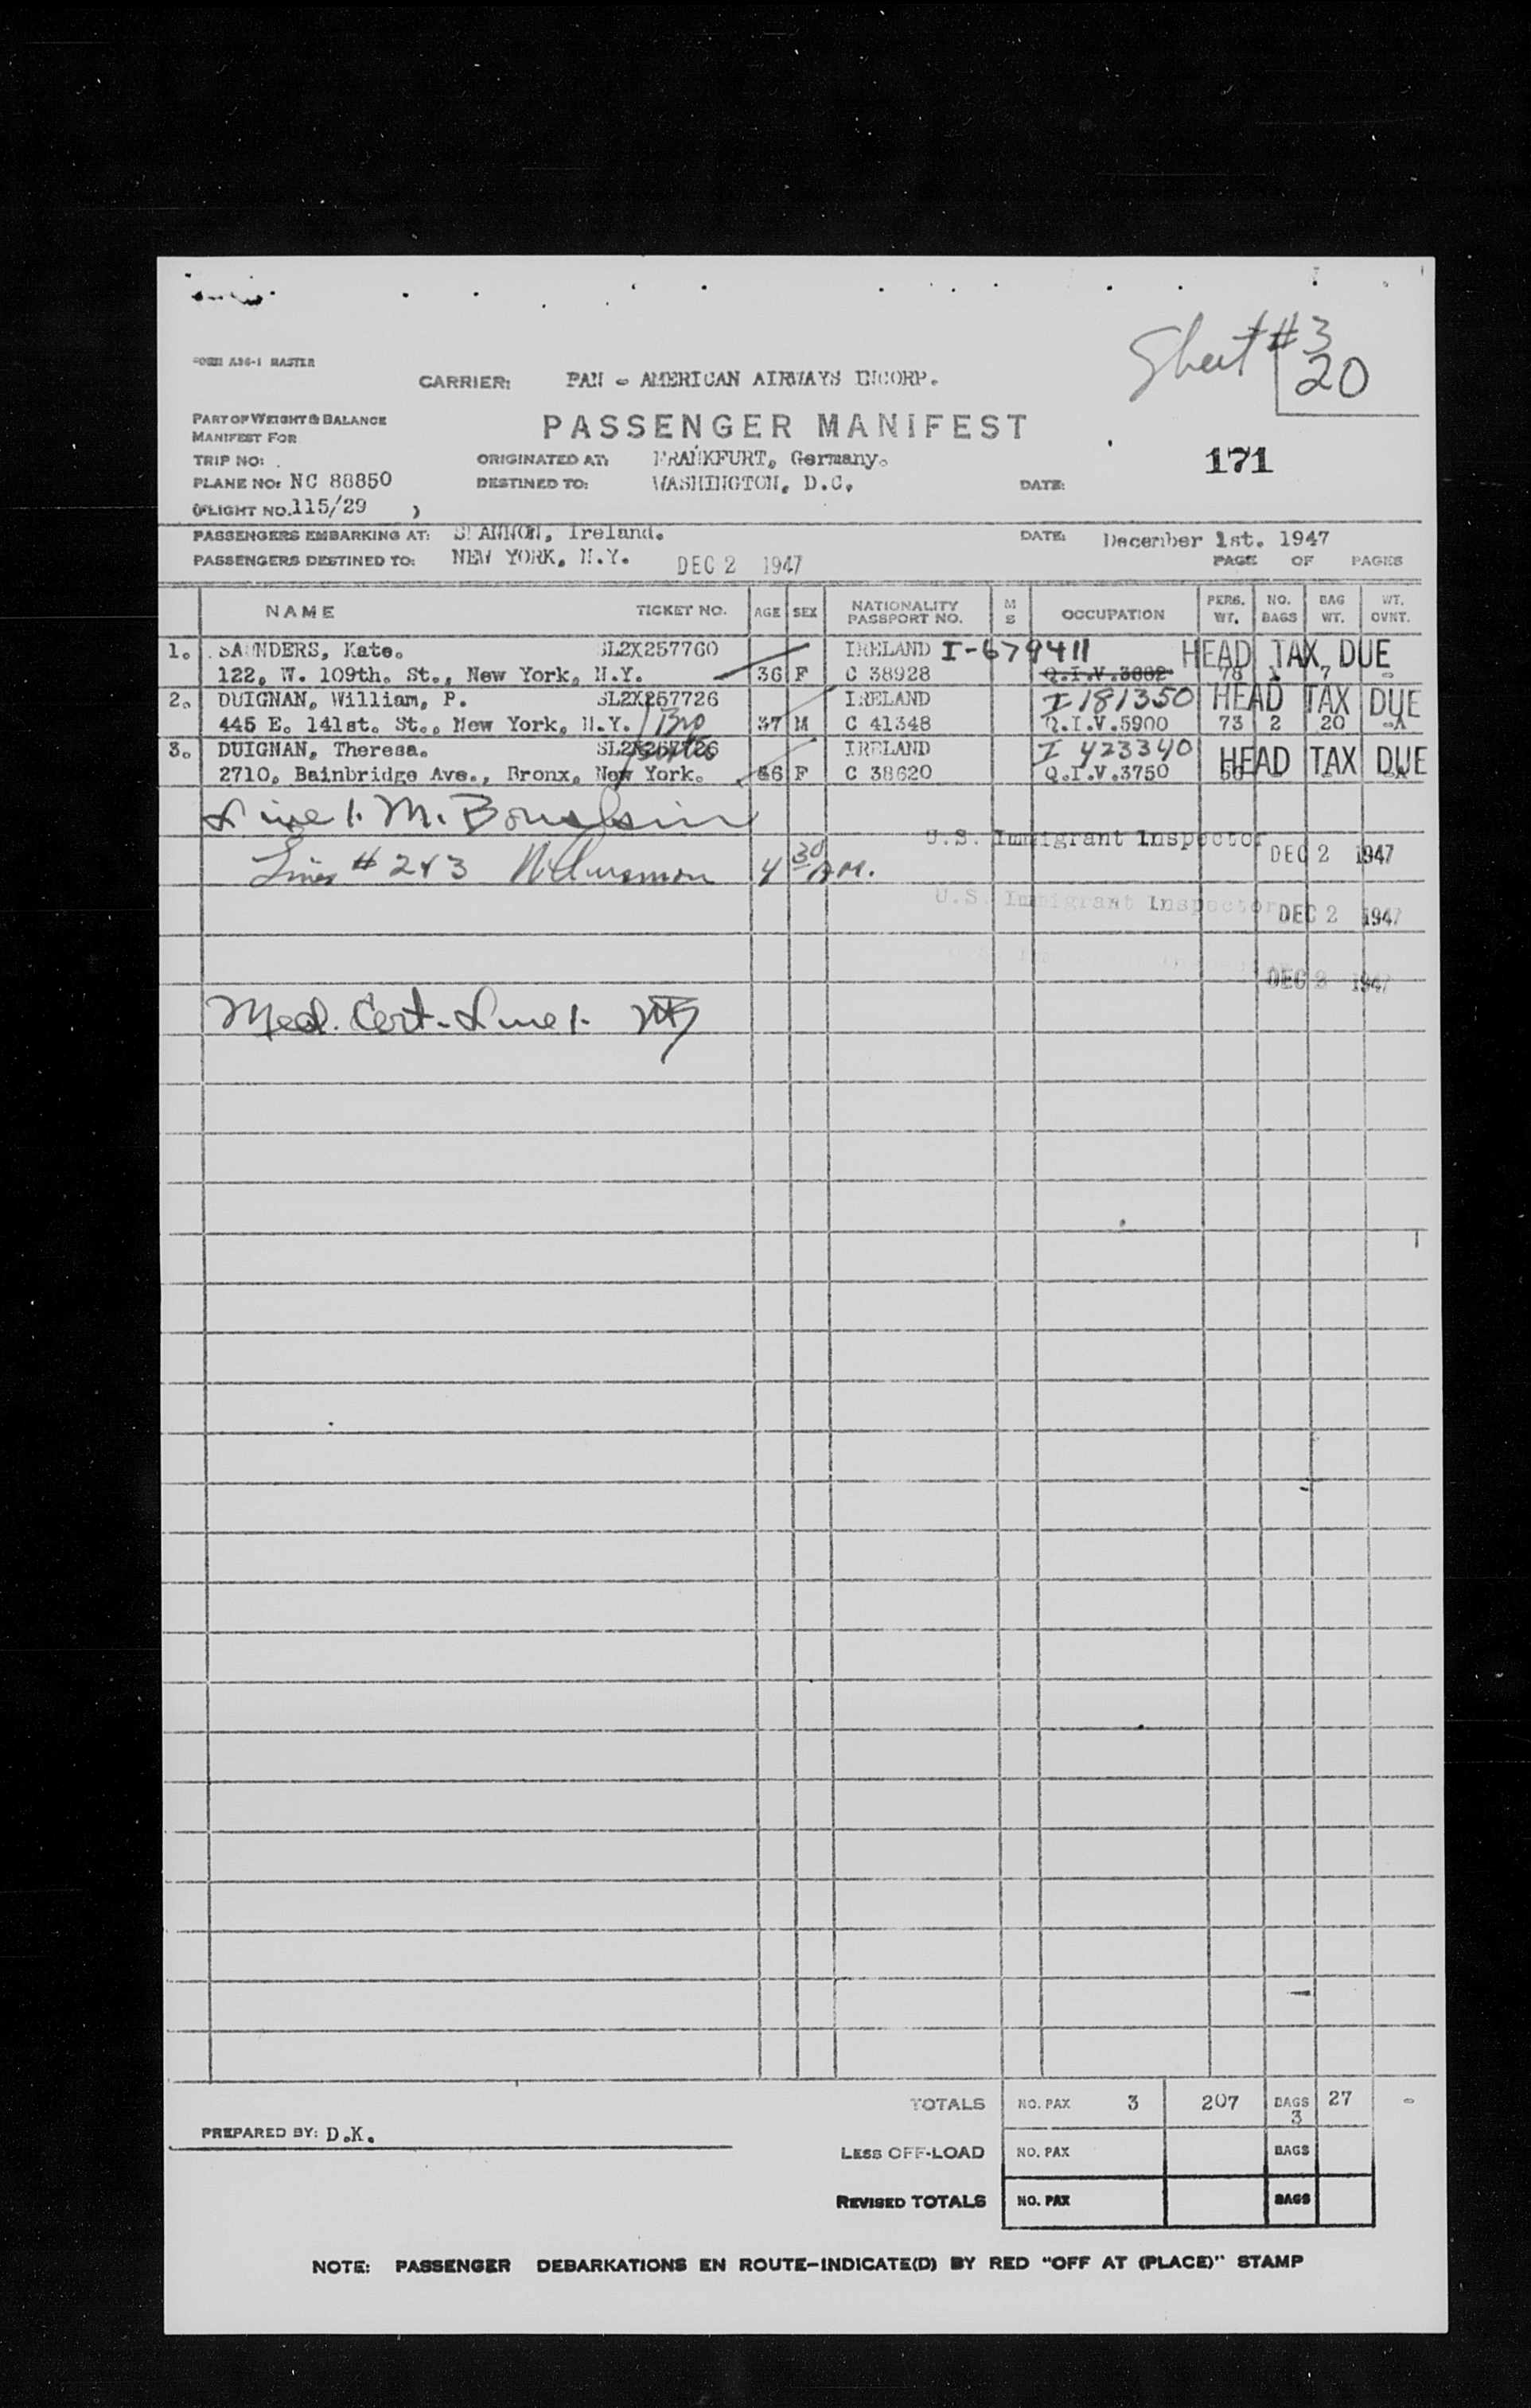 Sheet #3
20
FORM A36-1 MASTER
CARRIER: PAN - AMERICAN AIRWAYS INCORP.
PART OF WEIGHT & BALANCE
MANIFEST FOR
PASSENGER MANIFEST
171
TRIP NO:
ORIGINATED AT: FRANKFURT, Germany.
PLANE NO: NC 88850
DESTINED TO: WASHINGTON, D.C.
DATE:
(FLIGHT NO. 115/29 )
PASSENGERS EMBARKING AT: SHANNON, Ireland.
DATE: December 1st. 1947
PASSENGERS DESTINED TO: NEW YORK, N.Y. DEC 2 1947
PAGE OF PAGES
NAME TICKET NO. AGE SEX NATIONALITY PASSPORT NO. M S OCCUPATION PERS. WT. NO. BAGS BAG WT. WT. OVNT.
1. SAUNDERS, Kate. SL2X257760 IRELAND I-679411 HEAD TAX DUE
122, W. 109th. St., New York, N.Y. 36 F C 38928 Q.I.V.3882 78 1 7 -
2. DUIGNAN, William, P. SL2X257726 IRELAND I 181350 HEAD TAX DUE
445 E. 141st. St., New York, N.Y. 37 M C 41348 Q.I.V.5900 73 2 20
3. DUIGNAN, Theresa. SL2X257726 IRELAND I 423340 HEAD TAX DUE
2710, Bainbridge Ave., Bronx, New York. 36 F C 38620 Q.I.V.3750 56
Line 1. M.
U.S. Immigrant Inspector DEC 2 1947
Lines # 2 & 3 4 30 A.M.
U.S. Immigrant Inspector DEC 2 1947
DEC 2 1947
Med. Cert. Line 1.
TOTALS NO. PAX 3 207 BAGS 3 27 -
PREPARED BY: D.K.
LESS OFF-LOAD NO. PAX BAGS
REVISED TOTALS NO. PAX BAGS
NOTE: PASSENGER DEBARKATIONS EN ROUTE-INDICATE(D) BY RED "OFF AT (PLACE)" STAMP